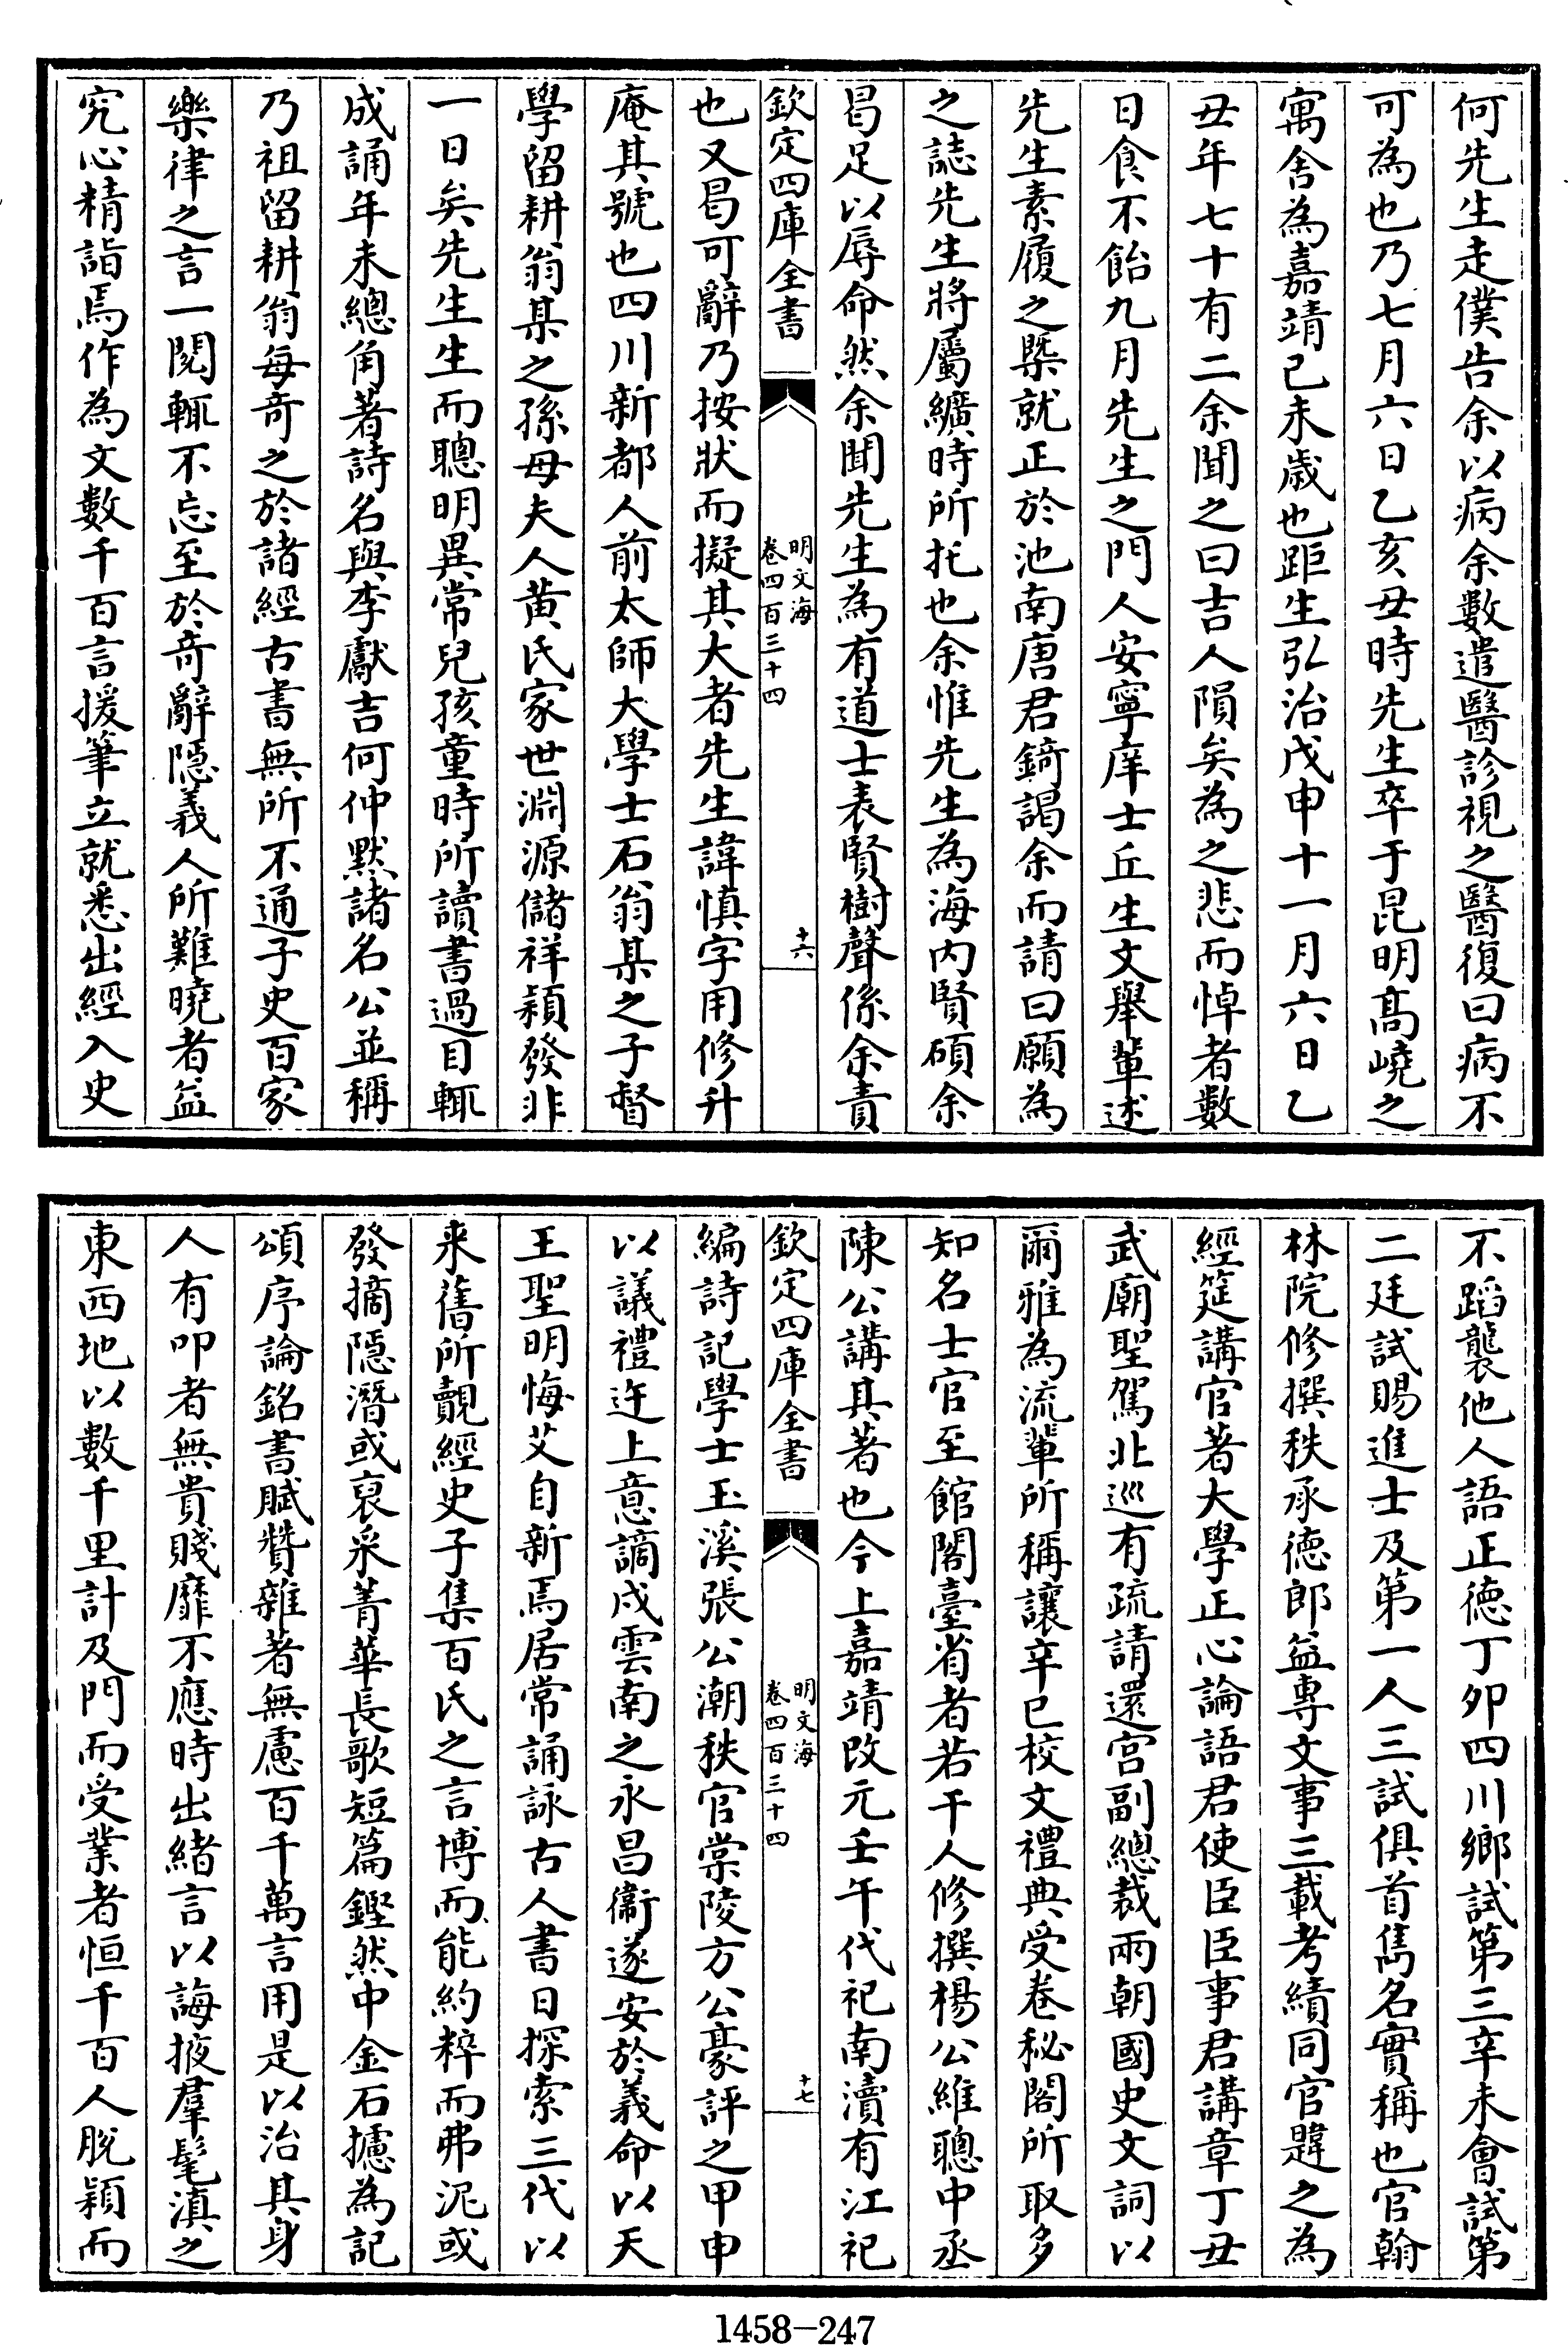 何先生走僕告余以病余數遣醫診視之醫復曰病不
可為也乃七月六日乙亥丑時先生卒于昆明髙嶢之
寓舎為嘉靖己未歲也距生弘治戊申十一月六日乙
丑年七十有二余聞之曰吉人隕矣為之悲而悼者數
日食不飴九月先生之門人安寧庠士丘生文舉輩述
先生素履之槩就正於池南唐君錡謁余而請曰願為
之誌先生將屬纊時所托也余惟先生為海内賢碩余
曷足以辱命然余聞先生為有道士表賢樹聲係余責
欽定四庫全書
明文海
卷四百三十四
十六
也又曷可辭乃按狀而擬其大者先生諱慎字用修升
庵其號也四川新都人前太師大學士石翁某之子督
學留耕翁某之孫母夫人黄氏家世淵源儲祥穎發非
一日矣先生生而聰明異常兒孩童時所讀書過目輒
成誦年未總角著詩名與李獻吉何仲默諸名公並稱
乃祖留耕翁每奇之於諸經古書無所不通子史百家
樂律之言一閲輒不忘至於奇辭隠義人所難曉者益
究心精詣焉作為文數千百言援筆立就悉出經入史
不蹈襲他人語正徳丁卯四川鄉試第三辛未會試第
二廷試賜進士及第一人三試俱首雋名實稱也官翰
林院修撰秩承徳郎益專文事三載考績同官韙之為
經筵講官著大學正心論語君使臣臣事君講章丁丑
武廟聖駕北巡有疏請還宫副總裁兩朝國史文詞以
爾雅為流輩所稱讓辛巳校文禮典受卷秘閣所取多
知名士官至館閣臺省者若干人修撰楊公維聰中丞
陳公講其著也今上嘉靖改元壬午代祀南瀆有江祀
欽定四庫全書
明文海
卷四百三十四
十七
編詩記學士玉溪張公潮秩官棠陵方公豪評之甲申
以議禮迕上意謫戍雲南之永昌衞遂安於義命以天
王聖明悔艾自新焉居常誦詠古人書日探索三代以
来舊所覿經史子集百氏之言博而能約粹而弗泥或
發摘隠潛或裒采菁華長歌短篇鏗然中金石攄為記
頌序論銘書賦贊雜著無慮百千萬言用是以治具身
人有叩者無貴賤靡不應時出緒言以誨掖羣髦滇之
東西地以數千里計及門而受業者恒千百人脫穎而
1458-247